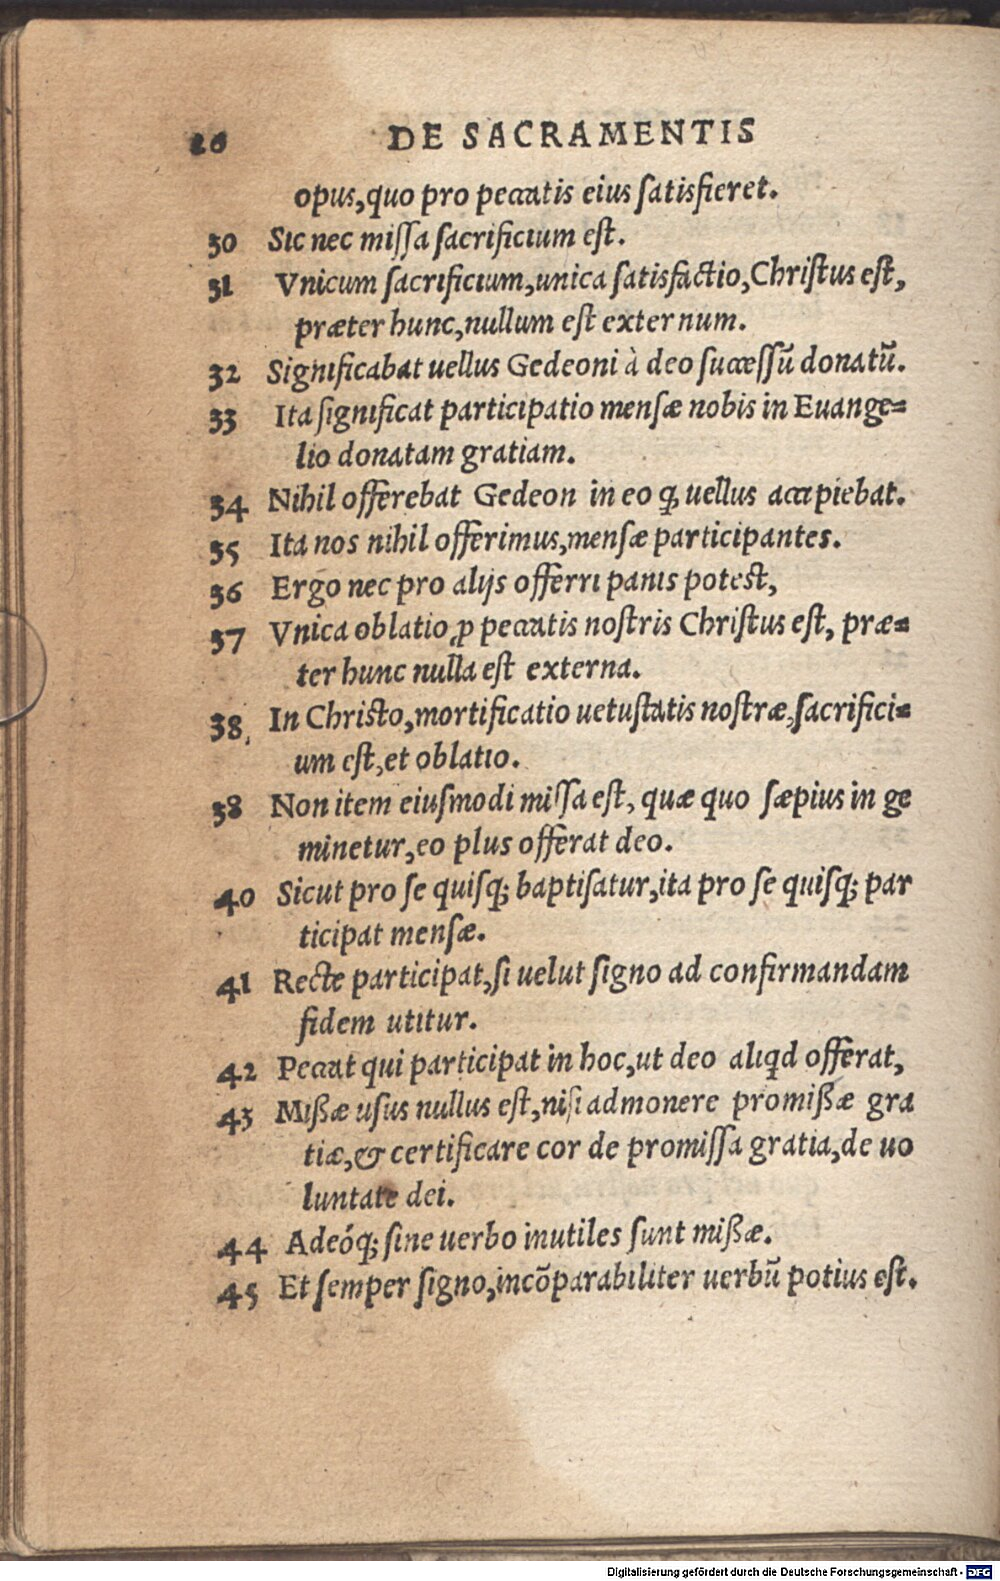 26 DE SACRAMENTIS
opus,quo pro peccatis eius ſatisfieret.
30 Sic nec miſſa ſacrificium eſt.
31 Vnicum ſacrificium,unica ſatisfactio,Chriſtus eſt,
præter hunc,nullum eſt externum.
32 Significabat uellus Gedeoni à deo ſucceſſū donatū.
33 Ita ſignificat participatio menſæ nobis in Euange=
lio donatam gratiam.
34 Nihil offerebat Gedeon in eo ꝙ uellus accipiebat.
35 Ita nos nihil offerimus,menſæ participantes.
36 Ergo nec pro alijs offerri panis poteſt,
37 Vnica oblatio ꝓ peccatis noſtris Chriſtus eſt, præ=
ter hunc nulla eſt externa.
38. In Chriſto,mortificatio uetuſtatis noſtræ,ſacrifici=
um eſt,et oblatio.
38 Non item eiuſmodi miſſa eſt, quæ quo ſæpius in ge
minetur,eo plus offerat deo.
40 Sicut pro ſe quiſq; baptiſatur,ita pro ſe quiſq; par
ticipat menſæ.
41 Recte participat,ſi uelut ſigno ad confirmandam
fidem utitur.
42 Peccat qui participat in hoc,ut deo aliqd offerat,
43 Mißæ uſus nullus eſt,niſi admonere promißæ gra
tiæ,& certificare cor de promiſſa gratia,de uo
luntate dei.
44 Adeóq; ſine uerbo inutiles ſunt mißæ.
45 Et ſemper ſigno,incōparabiliter uerbū potius eſt.
Digitalisierung gefördert durch die Deutsche Forschungsgemeinschaft - DFG